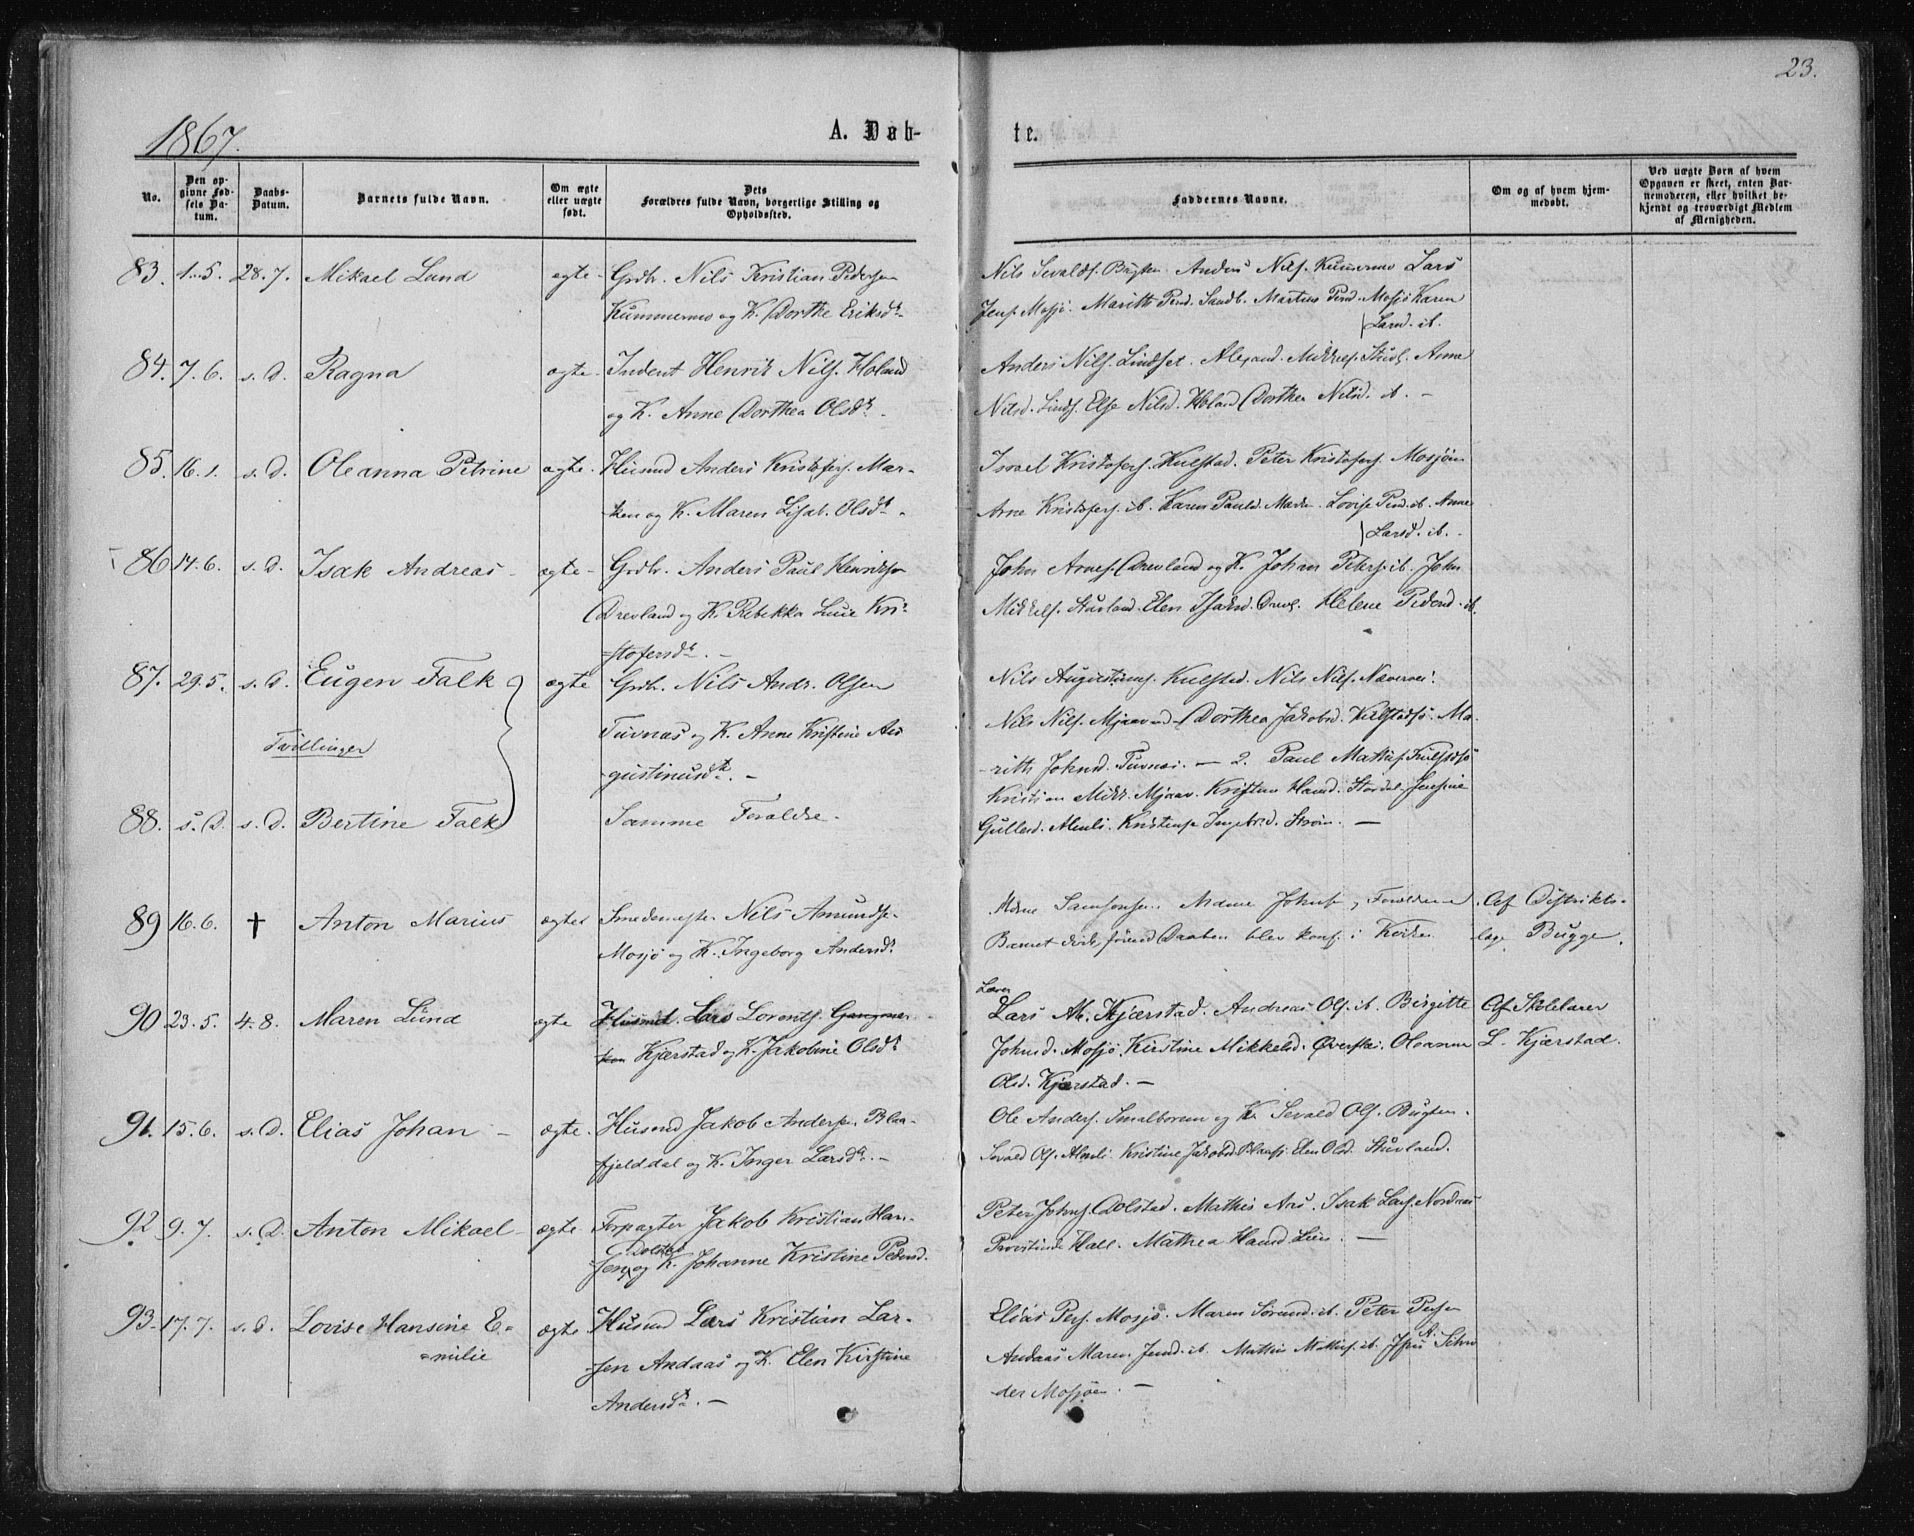 23.
1867.
A. Døb-
te.
No.
Den op-
givne Fød-
sels Da-
tum.
Daabs-
Datum.
Barnets fulde Navn.
Om ægte
eller uægte
født.
Dets
Forældres fulde Navn, borgerlige Stilling og
Opholdssted.
Faddernes Navne.
Om og af hvem hjem-
medøbt.
Ved uægte Børn af hvem
Opgaven er skeet, enten Bar-
nemoderen, eller hvilket be-
kjendt og troværdigt Medlem
af Menigheden.
83. 1.5. 28.7. Mikael Lund ægte Grdbr. Nils Kristian Pedersen
Kummernes og K. Dorthe Eriksd.
Nils Sevalds. Anders Nils. Kummernes Lars
Jens. Mosjø. Marith Sandb. Martin Mosjø Karen
Larsd. ib.
84. 7.6. s.D. Ragna ægte Inderst Henrik Nils. Holand
og K. Anne Dorthea Olsd.
Anders Nils. Lindset. Anne
Nilsd. Linds. Else Nilsd. Holand Dorthea Nilsd. ib. -
85. 16.1. s.D. Oleanna Petrine ægte Husmd Anders Kristofers. Mar-
ken og K. Maren Lisab. Olsd.
Israel Kristofers. Kulstad. Peter Kristofers. Mosjøen
Arne Kristofers. ib. Karen Paulsd. Lovise ib. Anne
Larsd. ib. -
86. 14.6. s.D. Isak Andreas ægte Grdbr. Anders Paul Henriksen
Drevland og K. Rebekka Kri-
stofersd. -
John Arnes. Drevland og K. Johan Peters. ib. John
Mikkels. Stuvland. Elen Isaksd. Drevl. Helene Pedersd. ib.
87. 29.5. s.D. Eugen Falk ægte Grdbr. Nils Andr. Olsen
Tuvnæs og K. Anne Kristine Au-
gustinusd. -
Tvillinger
Nils Augustinus. Kulstad. Nils Nils.
Nils Nils. Dorthea Jakobsd. Kulstadsø. Ma-
rith Johnsd. Tuvnæs. - 2. Paul Mathis. Kulstdsø
Kristian Mikk. Mjaav. Kristen Hansd. Stordal. Jensine
88. s.D. s.D. Bertine Falk Samme Forældre.
Gullesd. Almli. Ingebr.d. Strøm. -
89 16.6. † Anton Marius ægte Smedemester Nils Amundse.
Mosjø og K. Ingeborg Andersd.
Mdme Samsonsen. Mdme Johns. Forældrene
Barnet førend Daaben blev konf. i Kirken
Af Distrikts-
læge Bugge.
90 23.5. 4.8. Maren Lund ægte Husmd. Lars Lorents.
Kjærstad og K. Jakobine Olsd.
Lærer
Lars Kjærstad. Andreas Ols. ib. Birgitte
Johnsd. Mosjø. Kirstine Mikkelsd. Oleanna
Olsd. Kjærstad. -
Af Skolelærer
L. Kjærstad.
91. 15.6. s.D. Elias Johan - ægte Husmd Jakob Anders. Blaa-
fjelddal og K. Inger Larsd. -
Ole Anders. Smalboren og K. Sevald Ols. Bugten.
Sevald Ols. Almli. Kristine Jakobsd. Elen Olsd. Stuvland.
92 9.7. s.D. Anton Mikael ægte Forpagter Jakob Kristian Han-
sen Dolstad og K. Johanne Kristine Pedersd.
Peter Johns. Dolstad. Mathis Isak Lars. Nordaas
Provstinde Hall. Mathea Hansd Lien. -
93. 17.7. s.D. Lovise Hansine E-
milie ægte Husmd Lars Kristian Lar-
sen Andaas og K. Elen Kirstine
Andersd. -
Elias Pers. Mosjø. Maren ib. Peter
Andaas Maren Jensd. ib. Mathis Mathis. ib.
der Mosjøen. -